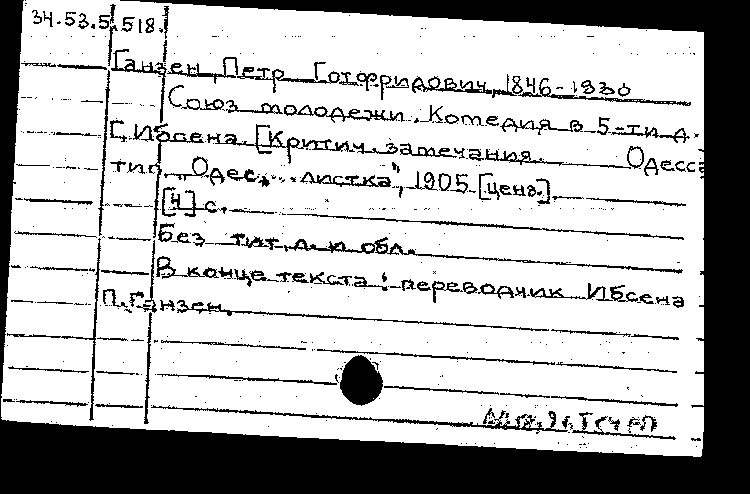 34.53.5.518.
Ганзен, Петр Готфридович, 1846-1930
Союз молодежи. Комедия в 5-ти д.
Г. Ибсена. [Критич. замечания. Одесса
тип. "Одес. листка", 1905 [ценз.].
[4] с.
Без тит. л. и обл.
В конце текста: переводчик Ибсена
П. Ганзен.